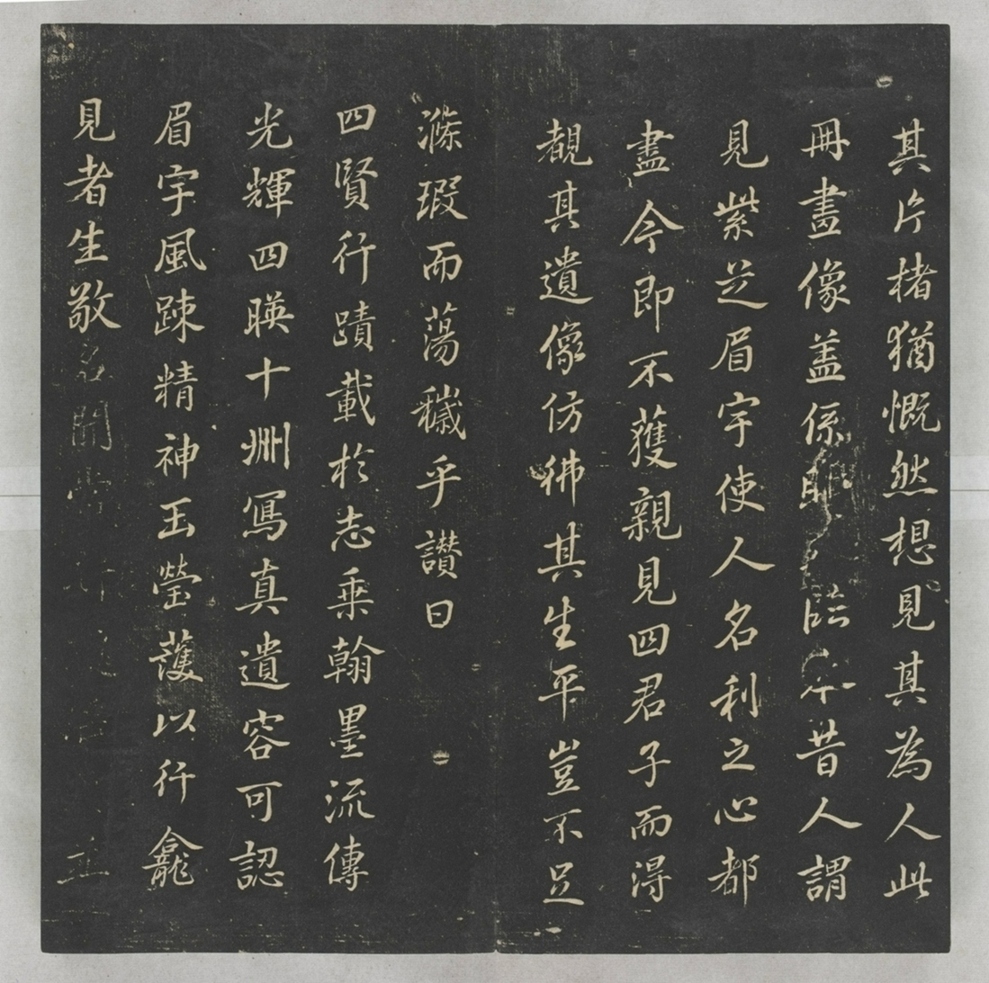 其片楮猶慨然想見其為人此
冊畫像盖係臨本昔人謂
見紫芝眉宇使人名利之心都
盡今即不獲親見四君子而得
覩其遺像仿彿其生平豈不足
滌瑕而蕩穢乎讚曰
四賢行蹟載於志乘翰墨流傳
光輝四暎十州寫真遺容可認
眉宇風踈精神玉瑩護以行龕
見者生敬